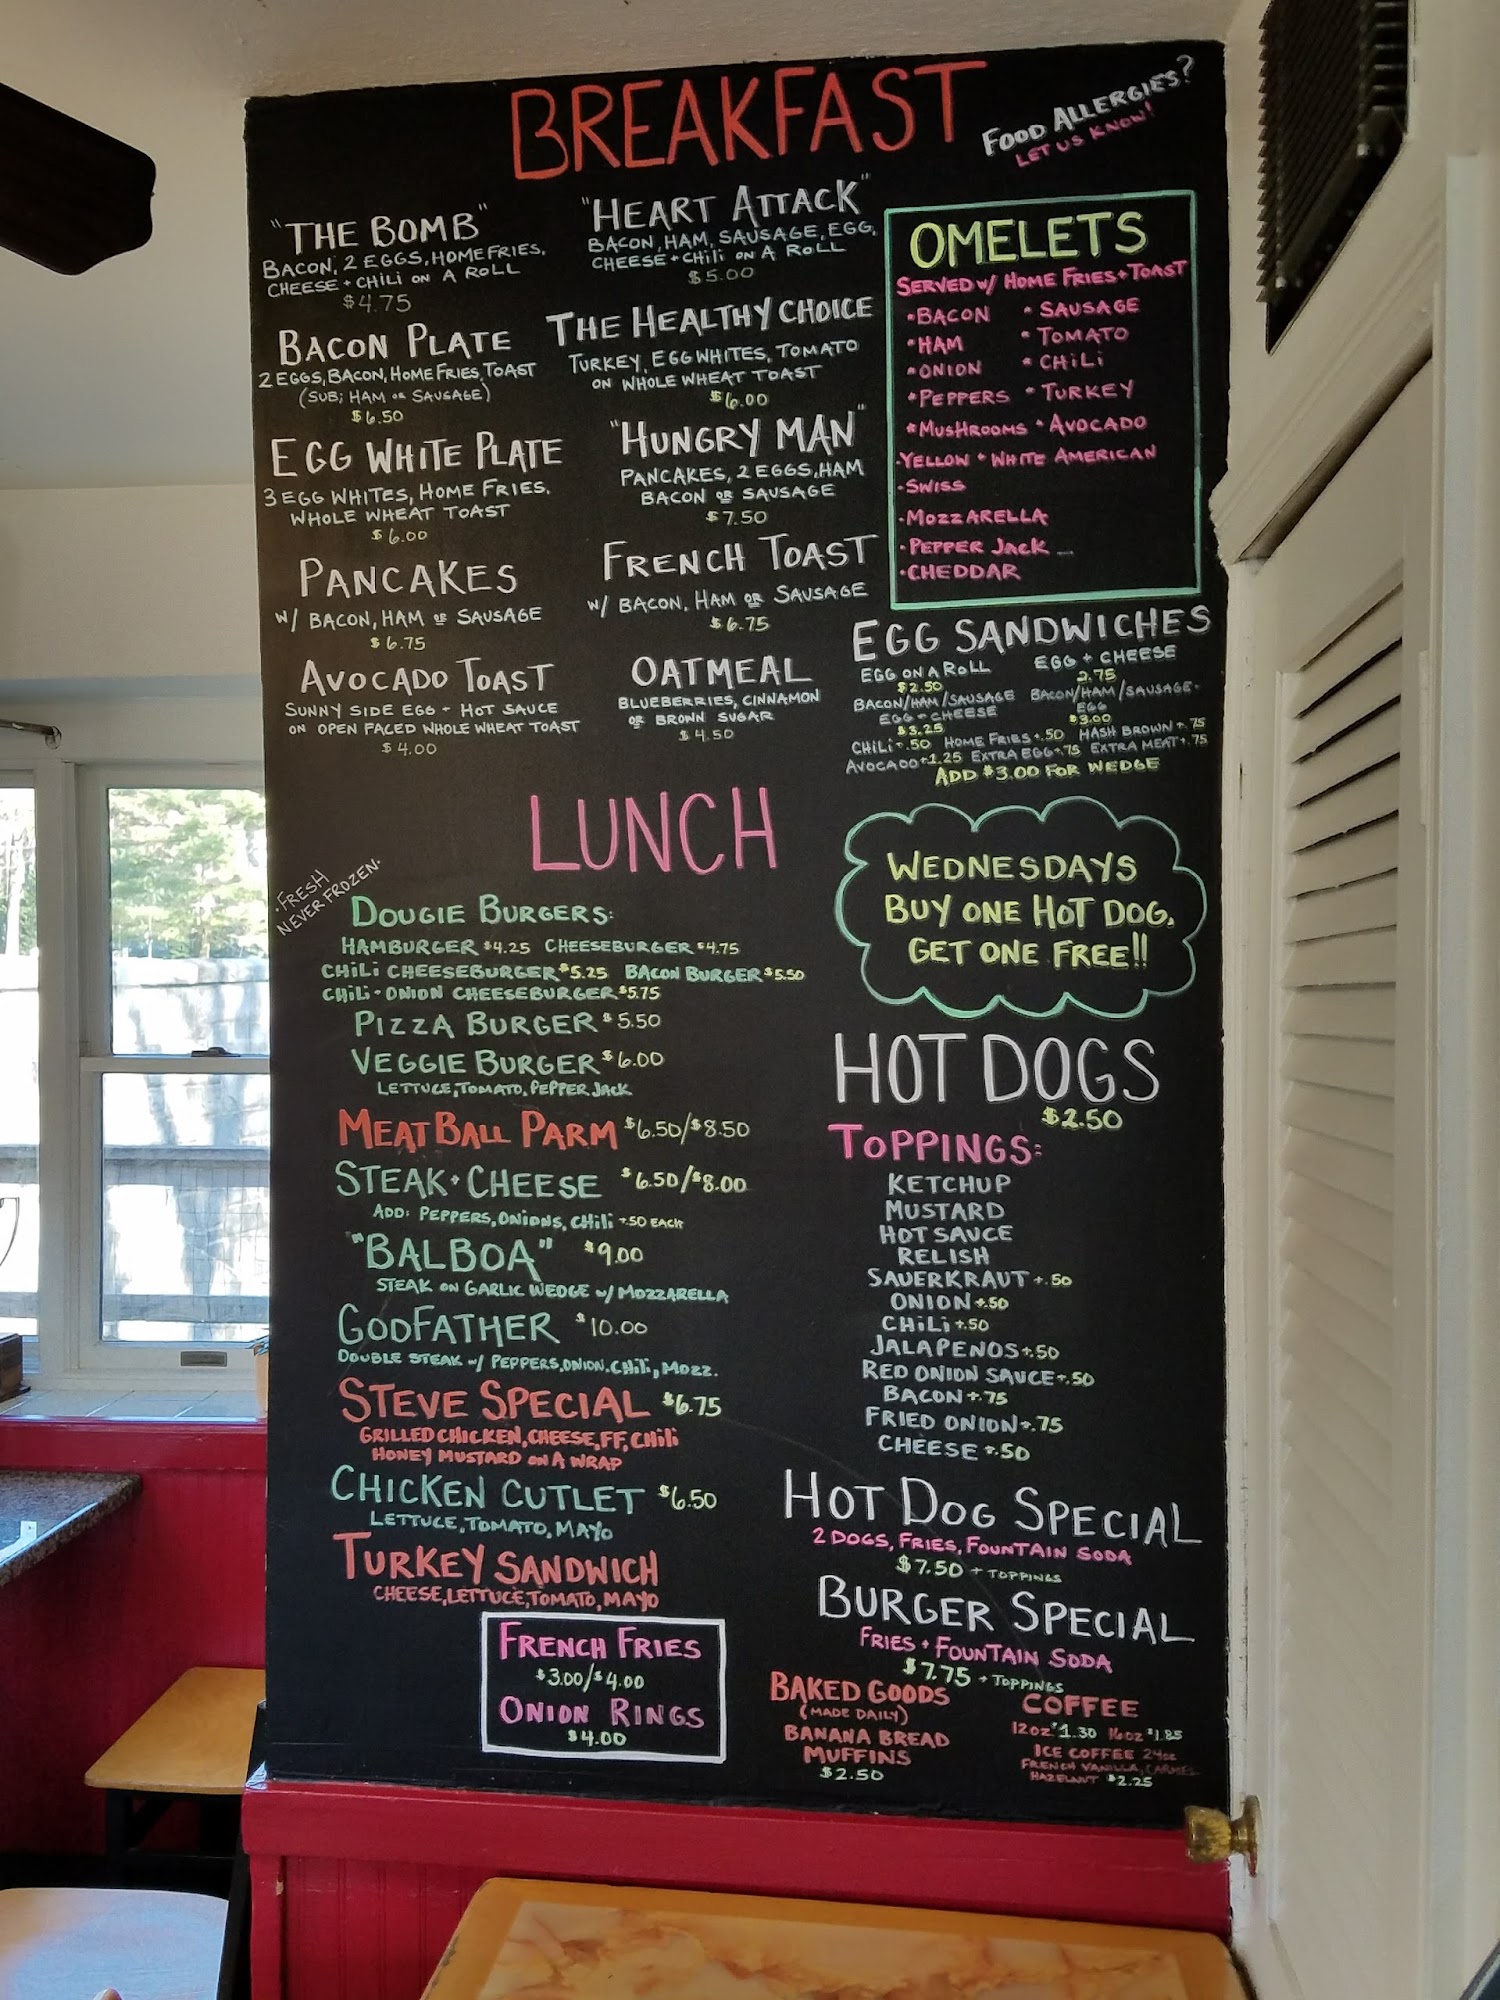 BREAKFAST
FOOD ALLERGIES?
LET US KNOW!
"THE BOMB"
BACON, 2 EGGS, HOME FRIES,
CHEESE + CHILI ON A ROLL
$4.75
BACON PLATE
2 EGGS, BACON, HOME FRIES, TOAST
(SUB; HAM OR SAUSAGE)
$6.50
EGG WHITE PLATE
3 EGG WHITES, HOME FRIES,
WHOLE WHEAT TOAST
$6.00
PANCAKES
W/ BACON, HAM OR SAUSAGE
$6.75
AVOCADO TOAST
SUNNY SIDE EGG + HOT SAUCE
ON OPEN FACED WHOLE WHEAT TOAST
$4.00
"HEART ATTACK"
BACON, HAM, SAUSAGE, EGG,
CHEESE + CHILI ON A ROLL
$5.00
THE HEALTHY CHOICE
TURKEY, EGG WHITES, TOMATO
ON WHOLE WHEAT TOAST
$6.00
"HUNGRY MAN"
PANCAKES, 2 EGGS, HAM
BACON OR SAUSAGE
$7.50
FRENCH TOAST
W/ BACON, HAM OR SAUSAGE
$6.75
OATMEAL
BLUEBERRIES, CINNAMON
OR BROWN SUGAR
$4.50
OMELETS
SERVED W/ HOME FRIES + TOAST
•BACON •SAUSAGE
•HAM •TOMATO
•ONION •CHILI
•PEPPERS •TURKEY
•MUSHROOMS •AVOCADO
•YELLOW + WHITE AMERICAN
•SWISS
•MOZZARELLA
•PEPPER JACK
•CHEDDAR
EGG SANDWICHES
EGG ON A ROLL EGG + CHEESE
$2.50 2.75
BACON/HAM/SAUSAGE BACON/HAM/SAUSAGE-
EGG + CHEESE EGG
$3.25 $3.00
CHILI +.50 HOME FRIES +.50 HASH BROWN +.75
AVOCADO +1.25 EXTRA EGG +.75 EXTRA MEAT +.75
ADD $3.00 FOR WEDGE
LUNCH
•FRESH
NEVER FROZEN•
DOUGIE BURGERS:
HAMBURGER $4.25 CHEESEBURGER $4.75
CHILI CHEESEBURGER $5.25 BACON BURGER $5.50
CHILI + ONION CHEESEBURGER $5.75
PIZZA BURGER $5.50
VEGGIE BURGER $6.00
LETTUCE, TOMATO, PEPPER JACK
MEATBALL PARM $6.50/$8.50
STEAK + CHEESE $6.50/$8.00
ADD: PEPPERS, ONIONS, CHILI +.50 EACH
"BALBOA" $9.00
STEAK ON GARLIC WEDGE W/ MOZZARELLA
GODFATHER $10.00
DOUBLE STEAK W/ PEPPERS, ONION, CHILI, MOZZ.
STEVE SPECIAL $6.75
GRILLED CHICKEN, CHEESE, FF, CHILI
HONEY MUSTARD ON A WRAP
CHICKEN CUTLET $6.50
LETTUCE, TOMATO, MAYO
TURKEY SANDWICH
CHEESE, LETTUCE, TOMATO, MAYO
FRENCH FRIES
$3.00/$4.00
ONION RINGS
$4.00
WEDNESDAYS
BUY ONE HOT DOG,
GET ONE FREE!!
HOT DOGS
$2.50
TOPPINGS:
KETCHUP
MUSTARD
HOT SAUCE
RELISH
SAUERKRAUT +.50
ONION +.50
CHILI +.50
JALAPENOS +.50
RED ONION SAUCE +.50
BACON +.75
FRIED ONION +.75
CHEESE +.50
HOT DOG SPECIAL
2 DOGS, FRIES, FOUNTAIN SODA
$7.50 + TOPPINGS
BURGER SPECIAL
FRIES + FOUNTAIN SODA
$7.75 + TOPPINGS
BAKED GOODS
(MADE DAILY)
BANANA BREAD
MUFFINS
$2.50
COFFEE
12oz $1.30 16oz $1.85
ICE COFFEE 24oz
FRENCH VANILLA, CARMEL
HAZELNUT $2.25